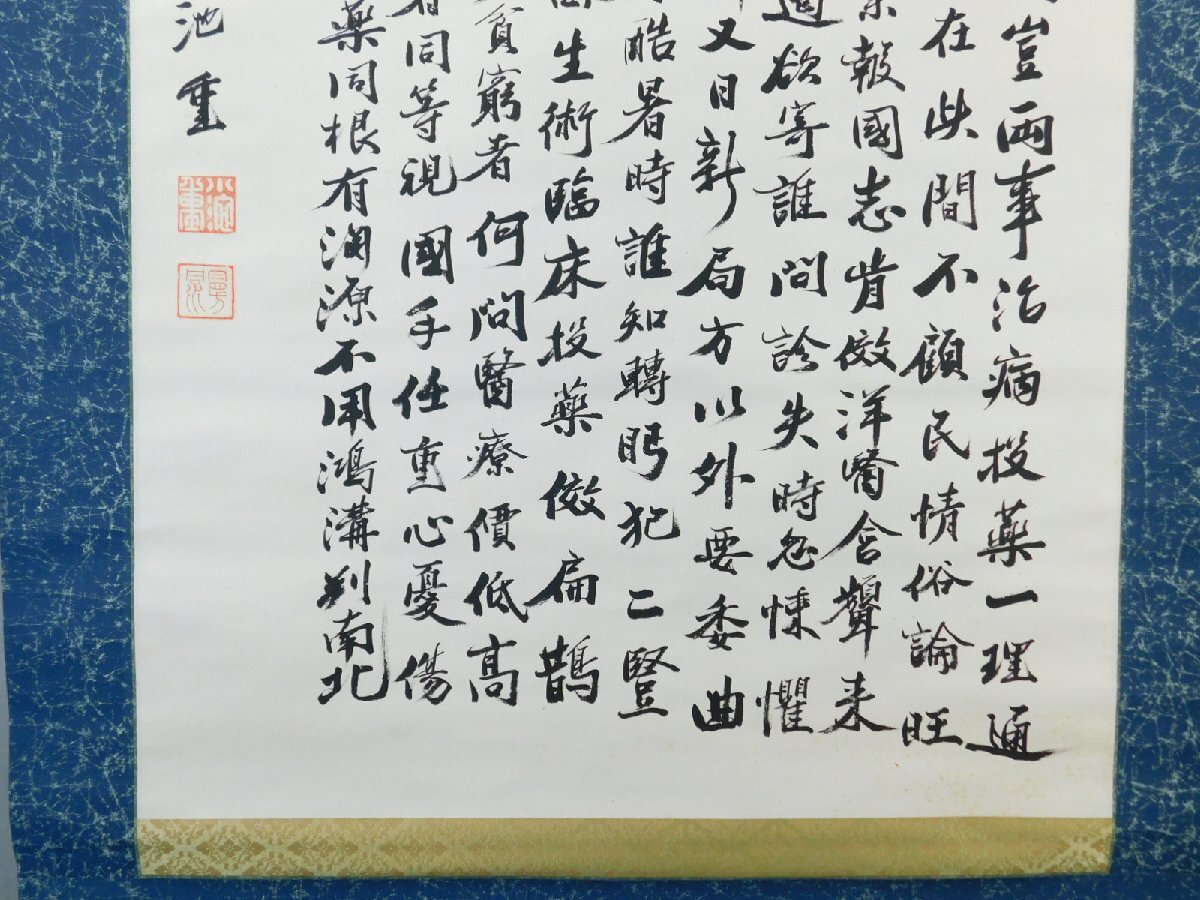 豈兩事治病投藥一理通
在此間不顧民情俗論旺
報國志肯倣洋醫含聲来
過欲寄誰問診失時忽悚懼
又日新局方以外要委曲
酷暑時誰知轉眄犯二豎
生術臨床投藥倣扁鵲
貧窮者何問醫療價低高
同等視國手任重心憂傷
藥同根有淵源不用鴻溝判南北
池重